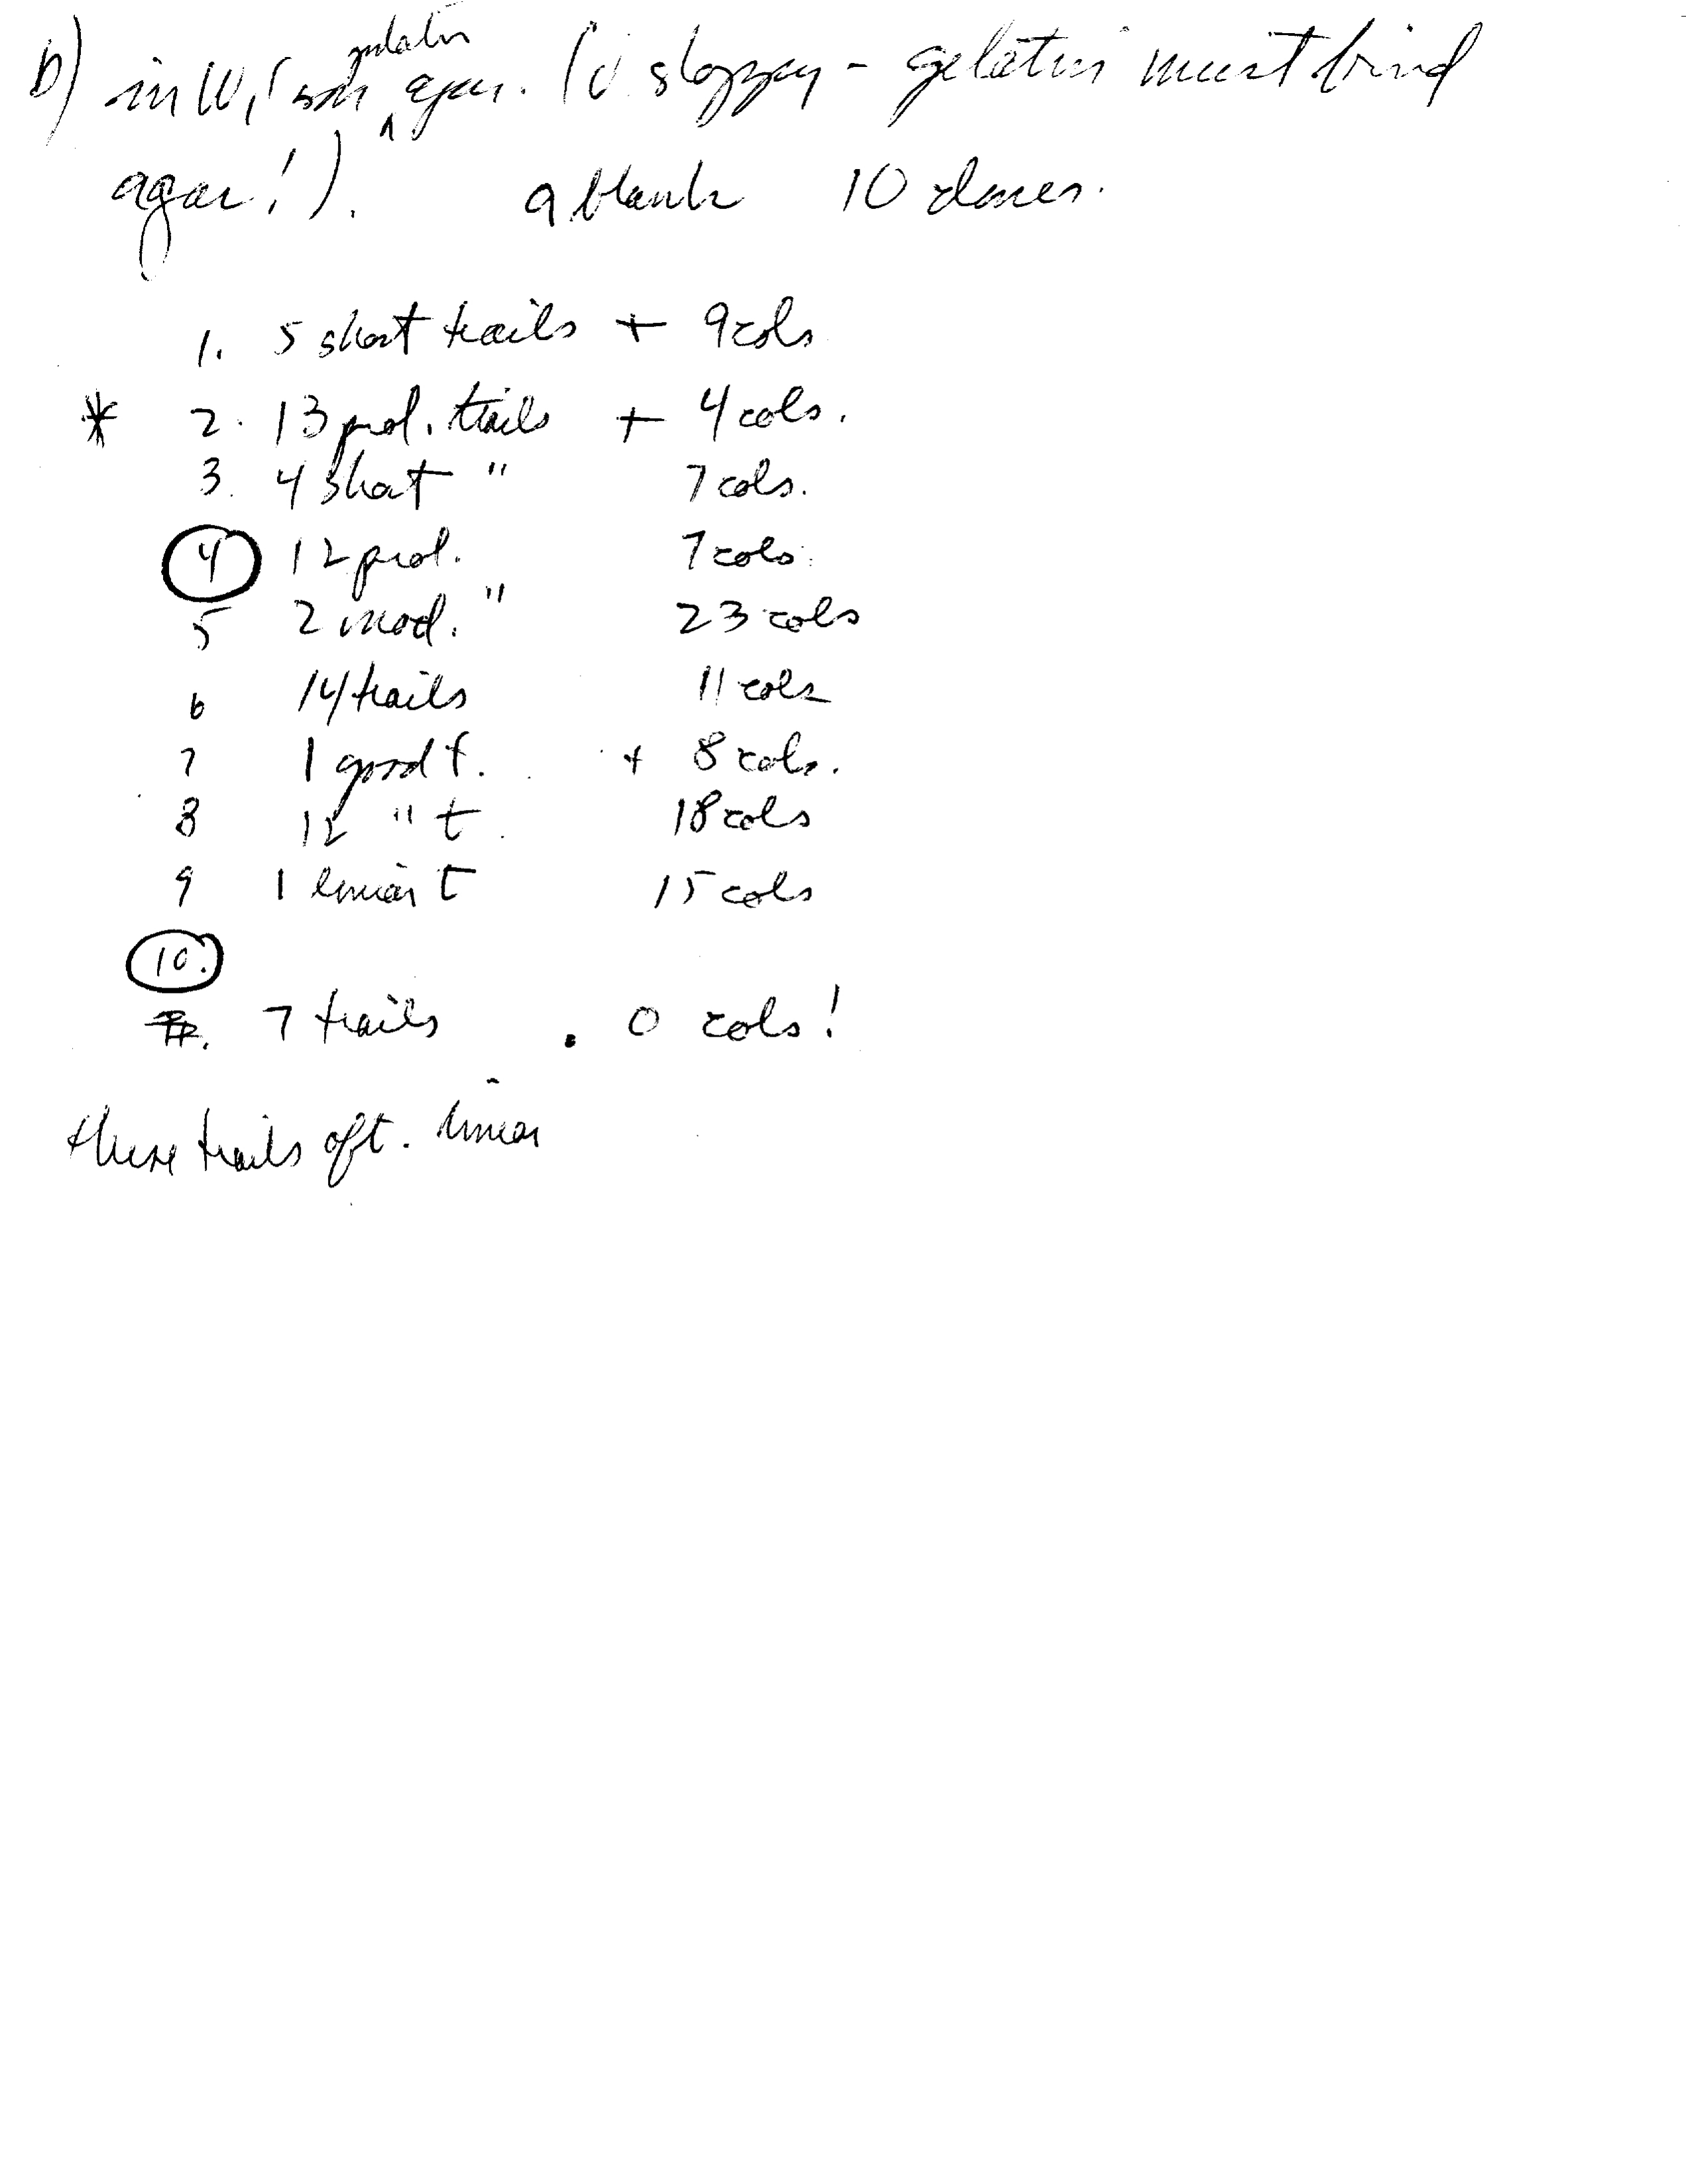 b) in W, soft gelatin agar. (v sloppy - gelatin must bind
agar!). 9 blank 10 clones.
1. 5 short trails + 9 cols
* 2. 13 prol. trails + 4 cols.
3. 4 short " 7 cols.
4 12 prol. 7 cols.
5 2 mod. " 23 cols
6 14 trails 11 cols
7 1 good t. + 8 cols.
8 12 " t. 18 cols
9 1 linear t 15 cols
10.
7 trails . 0 cols!
these trails oft. linear